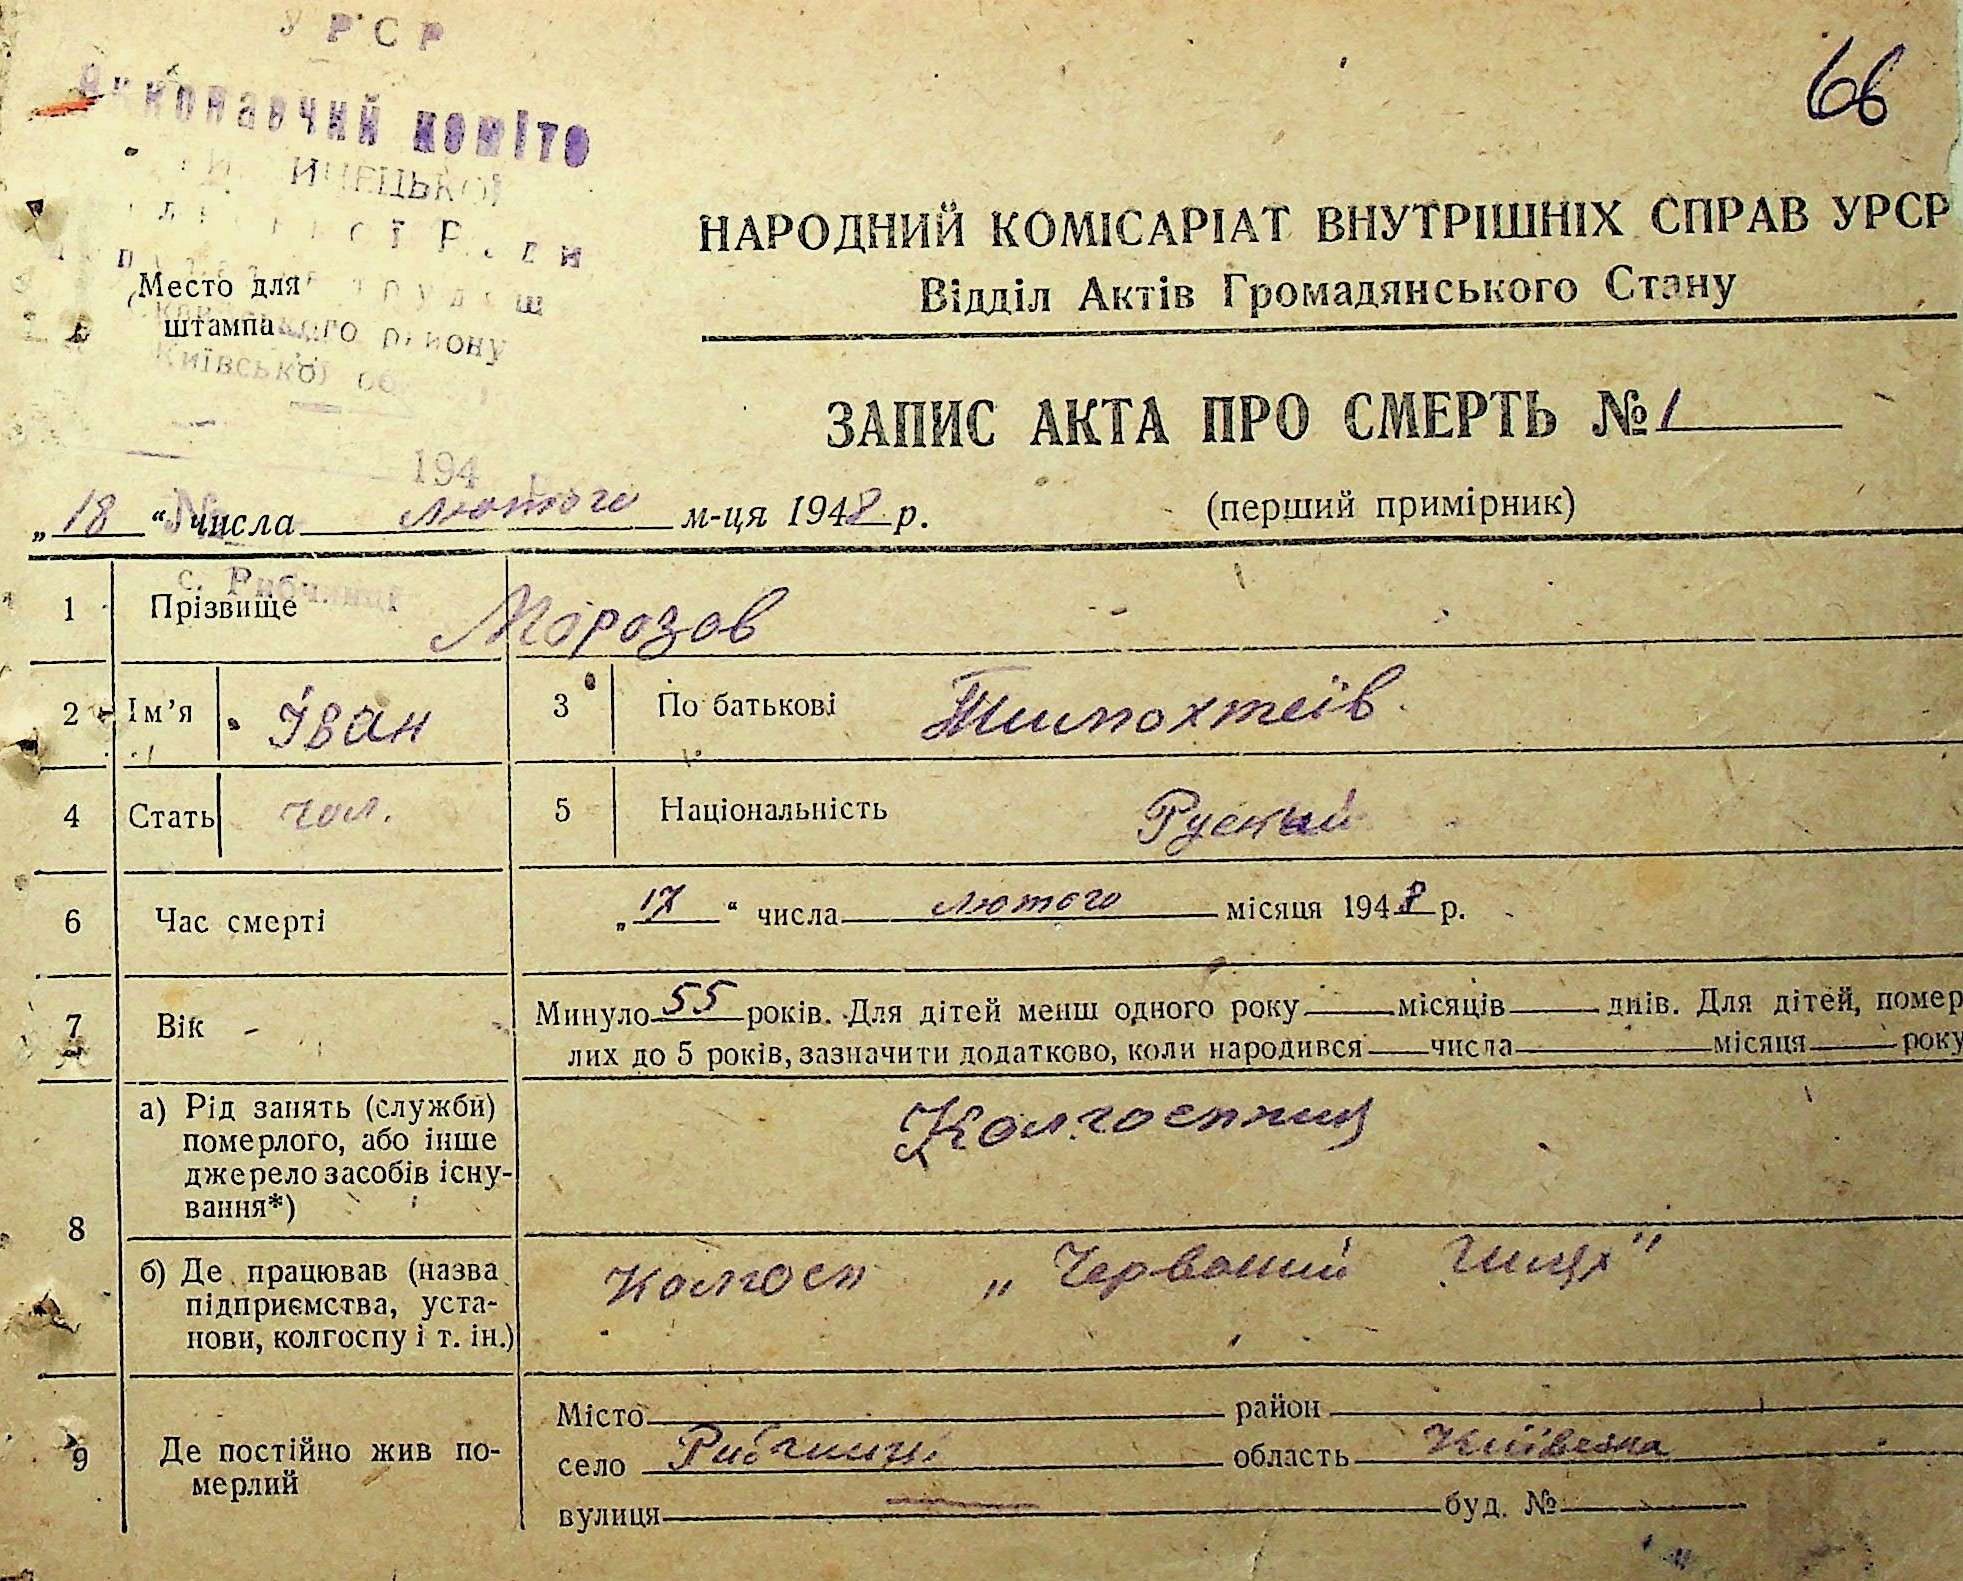 УРСР
66
НАРОДНИЙ КОМІСАРІАТ ВНУТРІШНІХ СПРАВ УРСР
Відділ Актів Громадянського Стану
Место для
штампа
району
Київської
ЗАПИС АКТА ПРО СМЕРТЬ № 1
194
№
„18“ числа лютого м-ця 1948 р.
(перший примірник)
с. Рибчинці
1 Прізвище Морозов
2 Ім'я Іван 3 По батькові Тимохтеїв
4 Стать чол. 5 Національність Руский
6 Час смерті „17“ числа лютого місяця 1948 р.
7 Вік Минуло 55 років. Для дітей менш одного року місяців днів. Для дітей, помер
лих до 5 років, зазначити додатково, коли народився числа місяця року
8 а) Рід занять (служби)
померлого, або інше
джерело засобів існу-
вання*)
Колгоспниц
б) Де працював (назва
підприємства, уста-
нови, колгоспу і т. ін.)
Колгосп „Червоний
9 Де постійно жив по-
мерлий
Місто район
село Рибчинці область Київська
вулиця буд. №